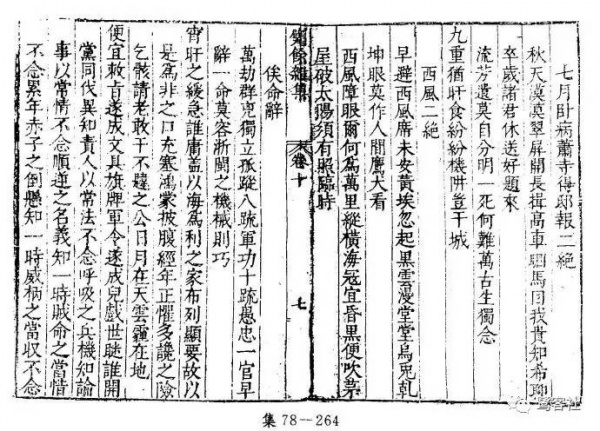 七月卧病蕭寺得邸報二絶
秋天漠漠翠屏開長揖高車駟馬囘我貴知希聊
卒歲諸君休送好題來
流芳遺臭自分明一死何難萬古生獨念
九重猶旰食紛紛機阱登干城
西風二絶
早避西風席未安黃埃忽起黑雲漫堂堂烏兎乹
坤眼莫作人間鷹犬看
西風障眼爾何為萬里縱橫海寇宜昏黒便吹茅
屋破太陽須有照臨時
甓餘雜集 卷十 七
俟命辭
萬劫群兇獨立孤蹤八疏軍功十疏愚忠一官早
辭一命莫容浙閩之機械則巧
宵旰之緩急誰庸蓋以海為利之家布列顯要故以
是為非之口充塞鴻蒙披腹經年正懼多讒之險
乞骸請老敢干不韙之公日月在天雲霾在地
便宜敕書遂成文具旗牌軍令遂成兒戲世誰開
黨同伐異知貴人以常法不念呼吸之兵機知論
事以常情不念順逆之名義知一時賊命之當惜
不念累年赤子之倒懸知一時威柄之當収不念
集 78－264
鷺客社